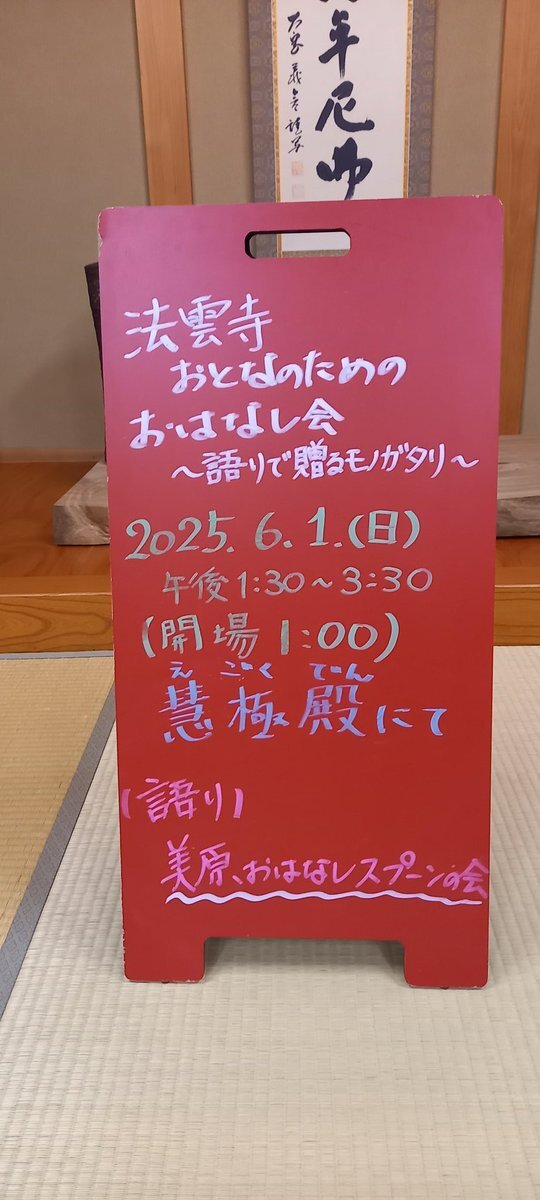 年尼師
法雲寺
おとなのための
おはなし会
〜語りで贈るモノガタリ〜
2025.6.1.(日)
午後1:30〜3:30
(開場1:00)
えごくでん
慧極殿にて
(語り)
美原、おはなしスプーンの会